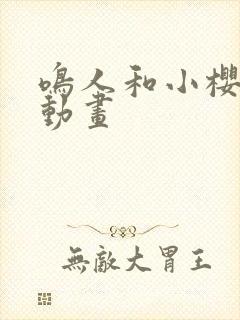 鳴人和小櫻
動畫
無敵大胃王